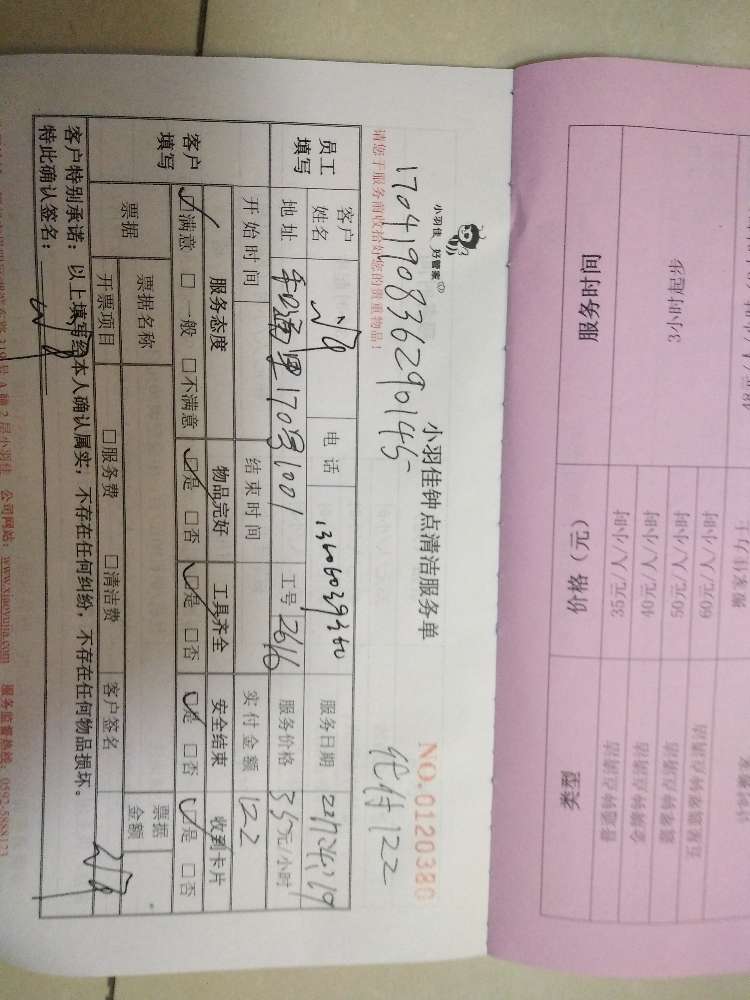 小羽佳 好管家
小羽佳钟点清洁服务单
NO.0120380
1704190836290145
优付122
请您于服务前收拾好您的贵重物品！
员工填写
客户姓名
电话 13606039360
服务日期
地址
170号1001
工号 2616
服务价格 35元/小时
开始时间
结束时间
实付金额 122
客户填写
服务态度 物品完好 工具齐全 安全结束 收到卡片
☑满意 □一般 □不满意 ☑是 □否 ☑是 □否 ☑是 □否 ☑是 □否
票据
票据名称
票据金额
开票项目 □服务费 □清洁费 客户签名
客户特别承诺：以上填写经本人确认属实，不存在任何纠纷，不存在任何物品损坏。
特此确认签名：
2层小羽佳 公司网站：www.xiaoyujia.com 服务监督热线：0592-5888123
类型 价格（元） 服务时间
普通钟点清洁 35元/人/小时
金牌钟点清洁 40元/人/小时
管家钟点清洁 50元/人/小时
60元/人/小时
3小时起步